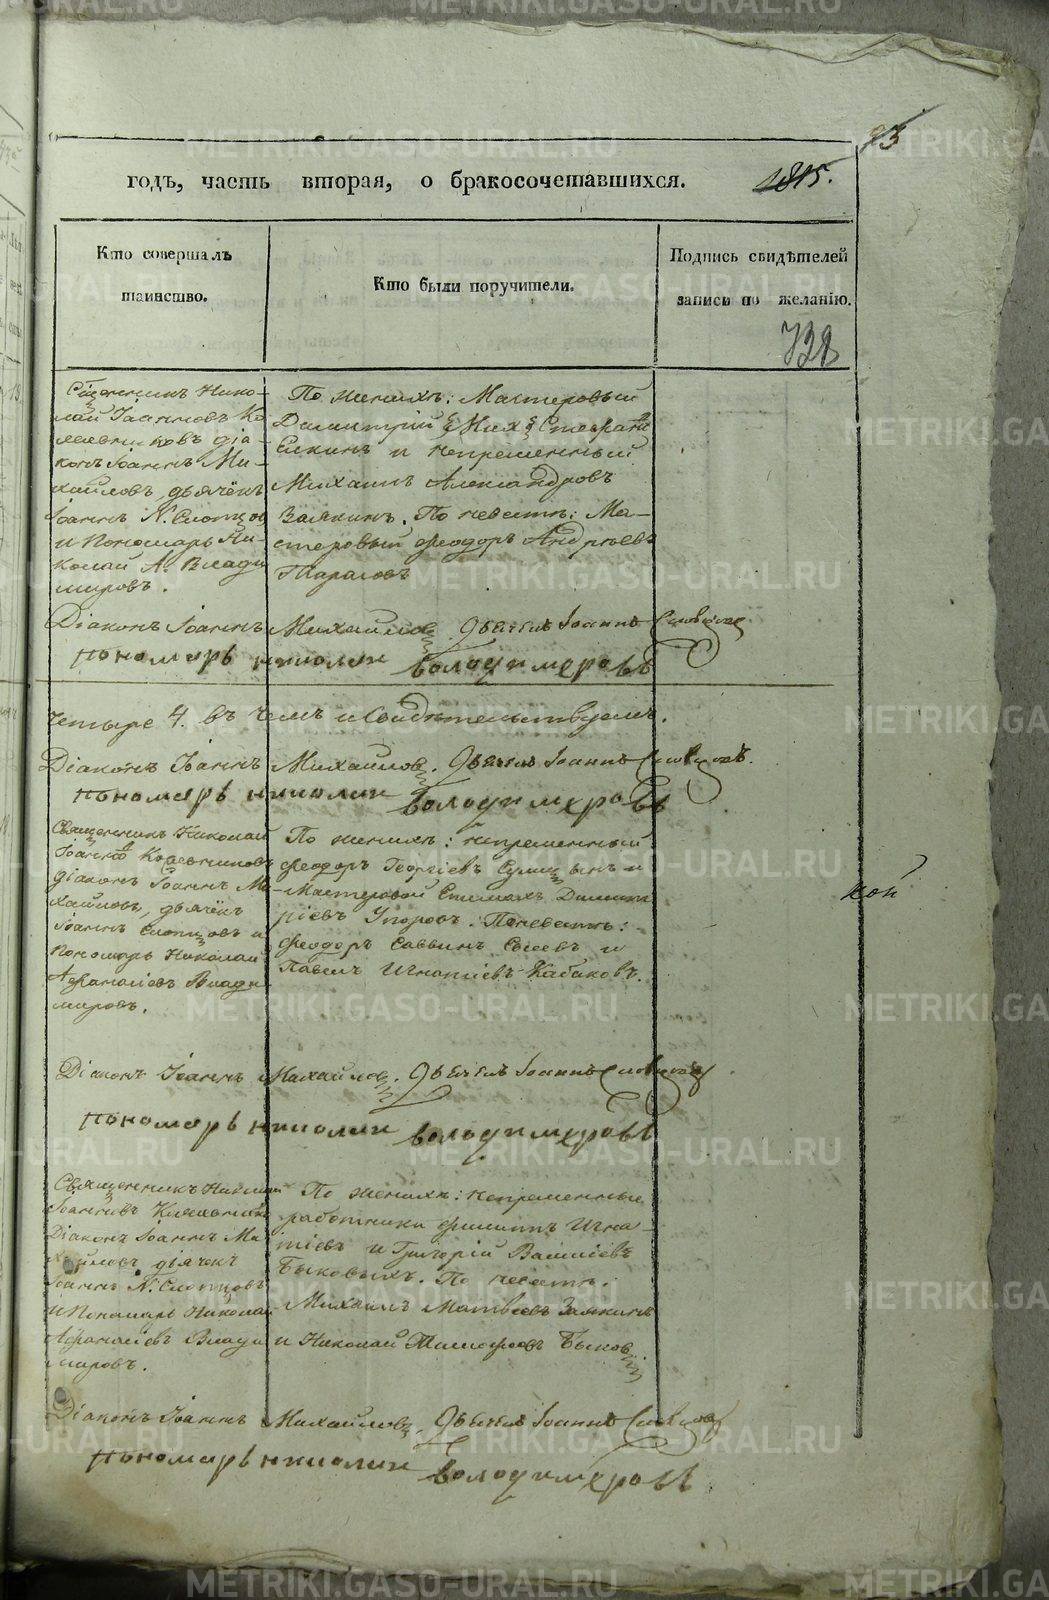 93
годъ, часть вторая, о бракосочетавшихся.
1815.
Кто совершалъ
таинство.
Кто были поручители.
Подпись свидѣтелей
записи по желанію.
738
Священникъ Нико-
лай Іоанновъ
діа-
конъ Іоаннъ Ми-
хайловъ, дьячёкъ
Іоаннъ N. Слотцов
и Пономарь Ни-
колай А. Влади
мировъ.
По женихѣ: Мастеровый
Димитрій
и непременный
Михаилъ Александровъ
Зыкинъ. По невестѣ: Ма-
стеровый Феодоръ Андреевъ
Тарасовъ
Діаконъ Іоаннъ Михайловъ. Дьячекъ Іоаннъ
пономарь николаи володимеровъ
четыре 4. въ чемъ и Свидѣтельствуемъ.
Діаконъ Іоаннъ Михайловъ. Дьячекъ Іоаннъ
пономарь николаи володимеровъ
Священникъ Николай
Іоанновъ
діаконъ Іоаннъ Ми-
хайловъ, дьячёкъ
Іоаннъ Слотцовъ и
пономарь Николай
Афанасіевъ Влади
мировъ.
По женихѣ: непременный
Феодоръ Георгіевъ и
Мастеровой Димит
ріевъ Упоровъ. По невестѣ:
Феодоръ Саввинъ и
Павелъ Игнатіевъ Кабаковъ.
кой
Діаконъ Іоаннъ Михайловъ. Дьячекъ Іоаннъ
пономарь николаи володимеровъ
Священникъ Николай
Іоанновъ
Діаконъ Іоаннъ Ми-
хайловъ дьячекъ
Іоаннъ N. Слотцовъ
и Пономарь Николай
Афанасіевъ Влади
мировъ.
По женихѣ: непременные
работники Филиппъ Игна-
тіевъ и Григорій Василіевъ
Быковыхъ. По невестѣ:
Михаилъ Матвеевъ Зыкинъ
и Николай Тимофеевъ Быковъ
Діаконъ Іоаннъ Михайловъ. Дьячекъ Іоаннъ
пономарь николаи володимеровъ
METRIKI.GASO-URAL.RU